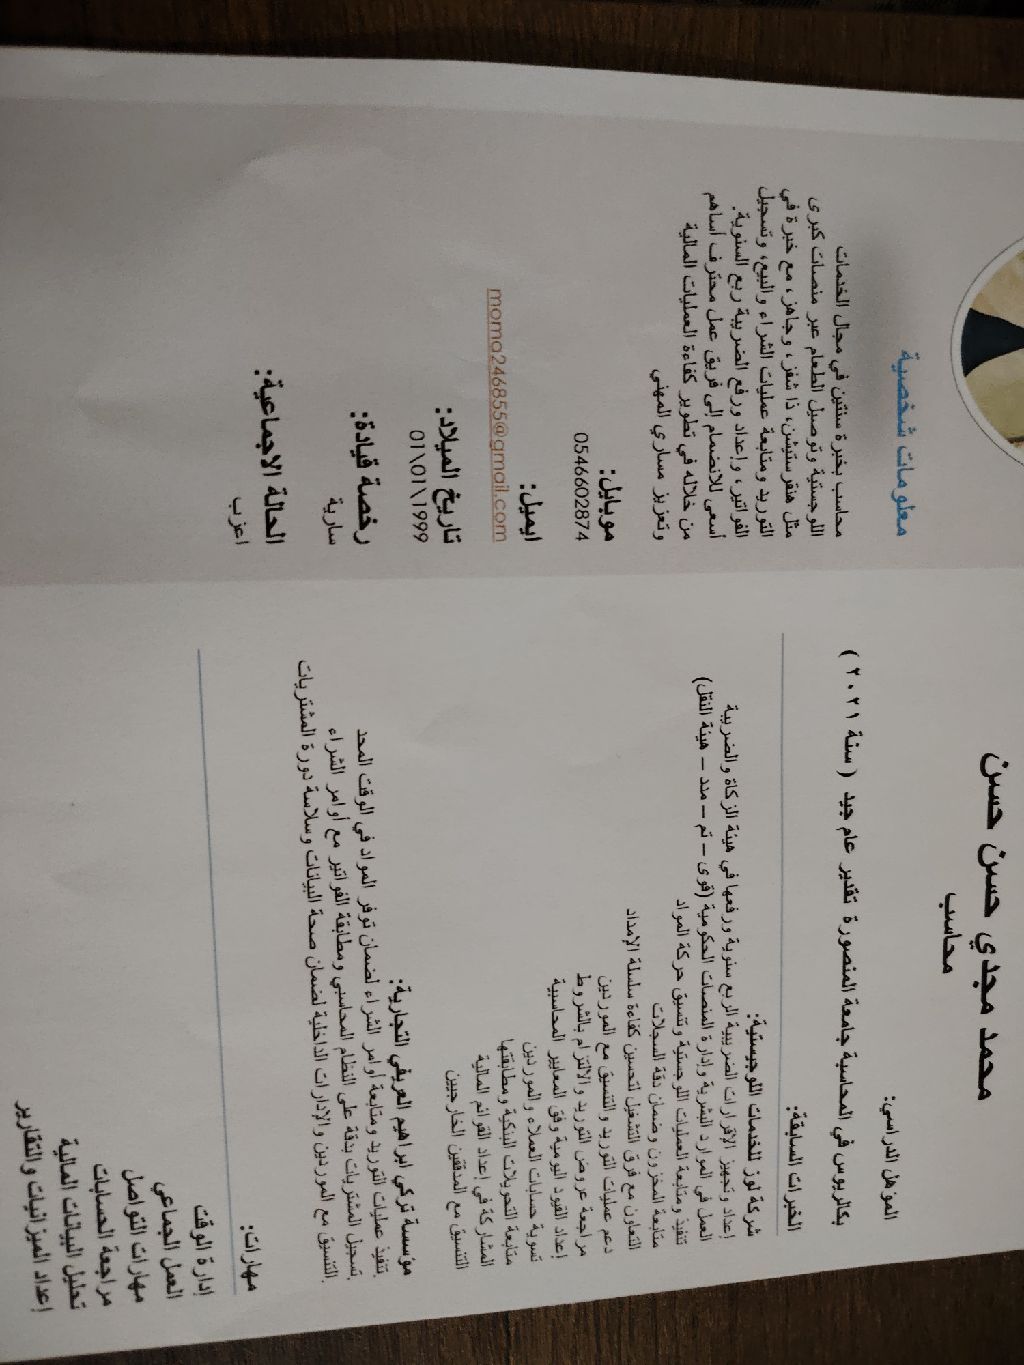 محمد مجدي حسن حسن
محاسب
المؤهل الدراسي:
بكالريوس في المحاسبة جامعة المنصورة تقدير عام جيد ( سنة ٢٠٢١ )
الخبرات السابقة:
شركة لوز للخدمات اللوجيستية:
إعداد وتجهيز الإقرارات الضريبية الربع سنوية ورفعها في هيئة الزكاة والضريبة
العمل في المرارد البشرية وإدارة المنصات الحكومية (قوى – تم – مدد – هيئة النقل)
تنفيذ ومتابعة العمليات اللوجستية وتنسيق حركة المواد
متابعة المخزون وضمان دقة السجلات
التعاون مع فرق التشغيل لتحسين كفاءة سلسلة الإمداد
دعم عمليات التوريد والتنسيق مع الموردين
مراجعة عروض التوريد والالتزام بالشروط
إعداد القيود اليومية وفق المعايير المحاسبية
تسوية حسابات العملاء والموردين
متابعة التحويلات البنكية ومطابقتها
المشاركة في إعداد القوائم المالية
التنسيق مع المدققين الخارجيين
مؤسسة تركي ابراهيم العريفي التجارية:
تنفيذ عمليات التوريد ومتابعة أوامر الشراء لضمان توفر المواد في الوقت المحد
تسجيل المشتريات بدقة على النظام المحاسبي ومطابقة الفواتير مع أوامر الشراء
التنسيق مع الموردين والإدارات الداخلية لضمان صحة البيانات وسلاسة دورة المشتريات
مهارات:
إدارة الوقت
العمل الجماعي
مهارات التواصل
مراجعة الحسابات
تحليل البيانات المالية
إعداد الميزانيات والتقارير
معلومات شخصية
محاسب بخبرة سنتين في مجال الخدمات
اللوجستية وتوصيل الطعام عبر منصات كبرى
مثل هنقرستيشن، ذا شفز، وجاهز، مع خبرة في
التوريد ومتابعة عمليات الشراء والبيع، وتسجيل
الفواتير، وإعداد ورفع الضريبة ربع السنوية.
أسعى للانضمام إلى فريق عمل محترف أساهم
من خلاله في تطوير كفاءة العمليات المالية
وتعزيز مساري المهني
موبايل:
0546602874
ايميل:
moma246855@gmail.com
تاريخ الميلاد:
01\01\1999
رخصة قيادة:
سارية
الحالة الاجماعية:
اعزب